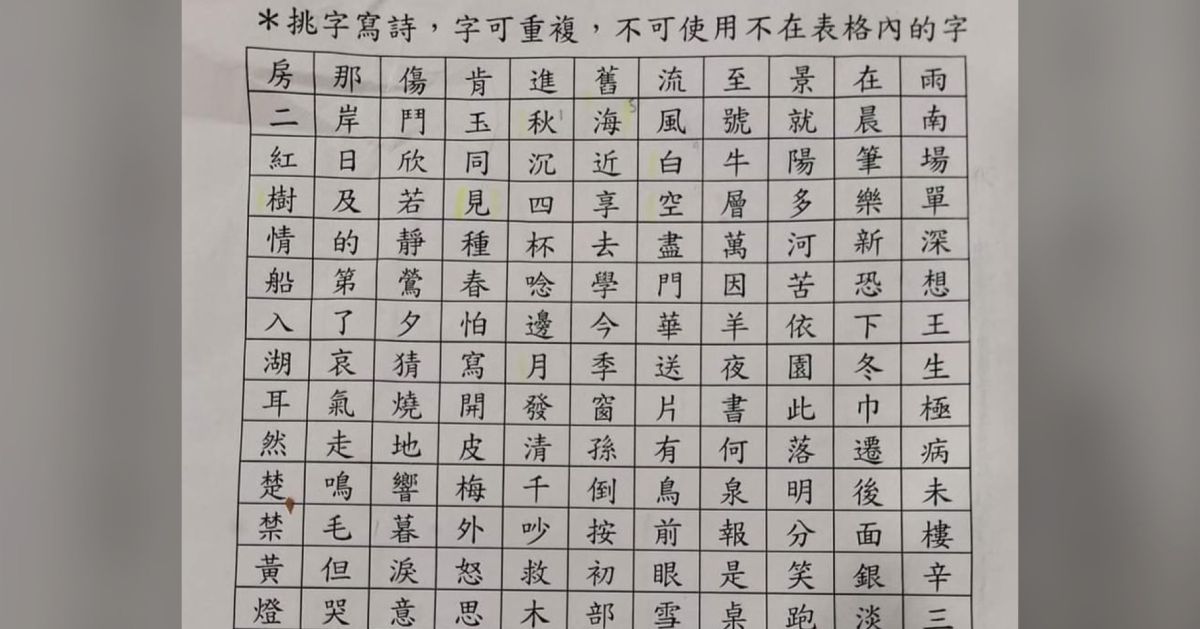 ＊挑字寫詩，字可重複，不可使用不在表格內的字
房 那 傷 肯 進 舊 流 至 景 在 雨
二 岸 鬥 玉 秋 海 風 號 就 晨 南
紅 日 欣 同 沉 近 白 牛 陽 筆 場
樹 及 若 見 四 享 空 層 多 樂 單
情 的 靜 種 杯 去 盡 萬 河 新 深
船 第 鶯 春 唸 學 門 因 苦 恐 想
入 了 夕 怕 邊 今 華 羊 依 下 王
湖 哀 猜 寫 月 季 送 夜 園 冬 生
耳 氣 燒 開 發 窗 片 書 此 巾 極
然 走 地 皮 清 孫 有 何 落 遷 病
楚 鳴 響 梅 千 倒 鳥 泉 明 後 未
禁 毛 暮 外 吵 按 前 報 分 面 樓
黃 但 淚 怒 救 初 眼 是 笑 銀 辛
燈 哭 意 思 木 部 雪 桌 跑 淡 三